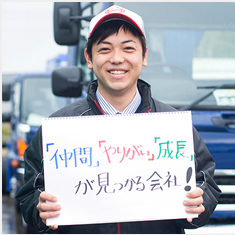 「仲間」「やりがい」「成長」
が見つかる会社!